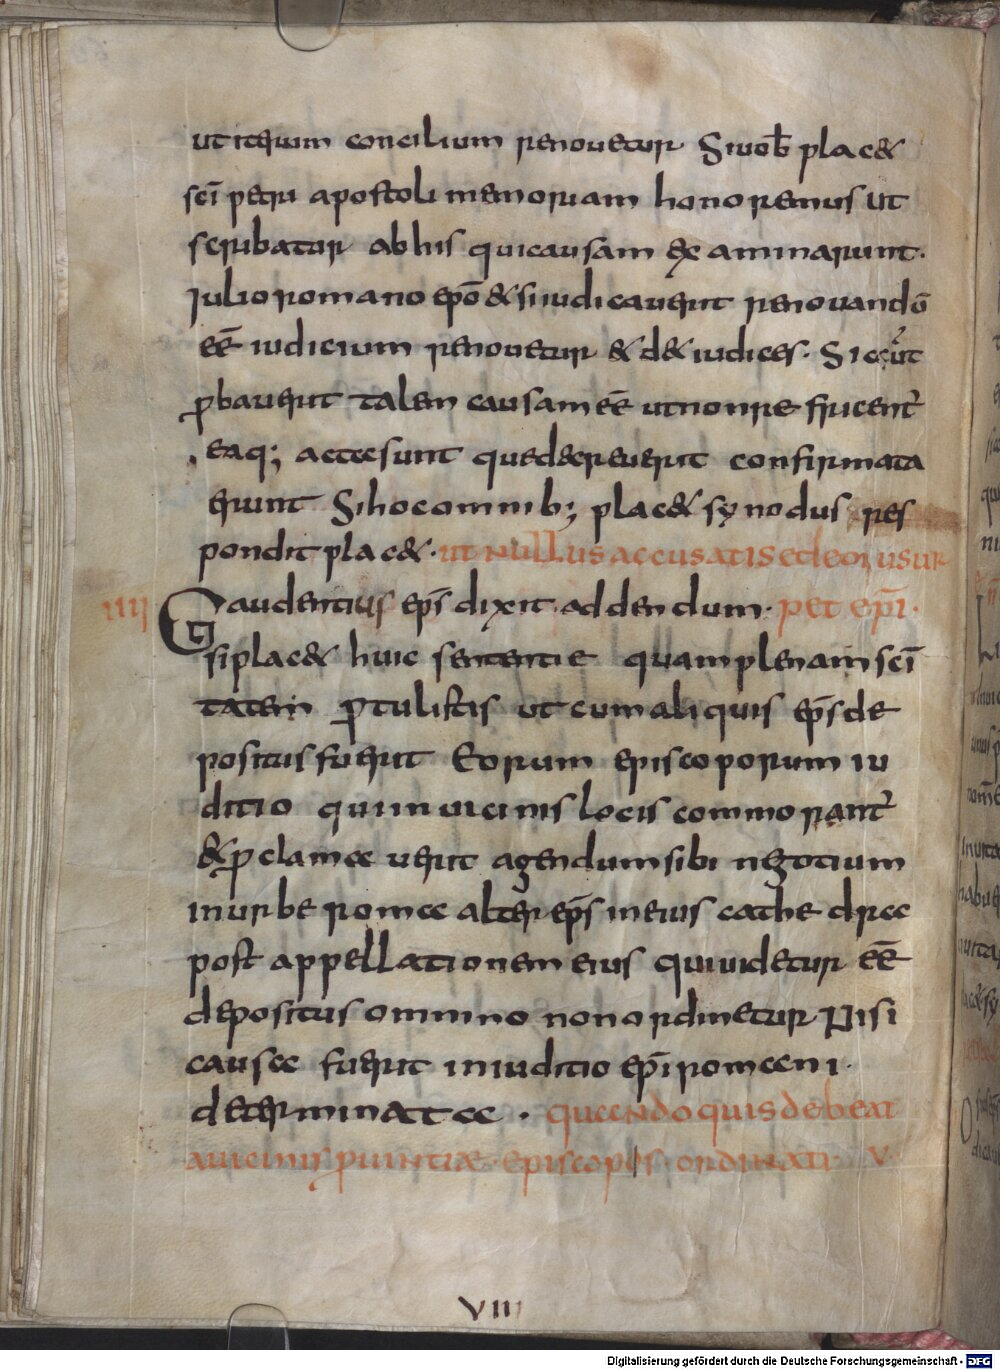 ut iterum concilium renouetur Si uob̅ plac&
sc̅i petri apostoli memoriam honoremus ut
scribatur ab his qui causam examinarunt.
Iulio romano ep̅o & si iudicauerit renouandū
ee̅ iudicium renouetur & d& iudices. Si
ꝓbauerit talem causam ee̅ ut non refricent̉
eaq; acta sunt que decreuerit confirmata
erunt Si hoc omnib; plac& synodus res
pondit plac&. ut nullus accusatis
IIII Gaudentius ep̅s dixit addendum. pet ep̅i.
si plac& huic sententie quam plenam sc̅i
tatem ꝓtulistis ut cum aliquis ep̅s de
positus fuerit Eorum episcoporum iu
ditio qui in uicinis locis commorant̉
& ꝓclamauerit agendum sibi negotium
in urbe roma alter ep̅s in eius cathedra
post appellationem eius qui uidetur ee̅
depositus omnino non ordinetur Nisi
causa fuerit in iuditio ep̅i romani.
determinata. quando quis debeat
a uicinis ꝓuintiæ. episcopis. ordinati. V.
VIII
Digitalisierung gefördert durch die Deutsche Forschungsgemeinschaft - DFG